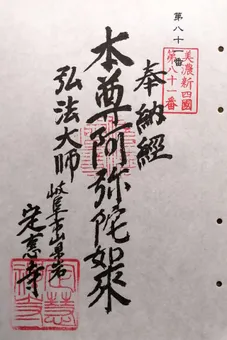 第八十一番
美濃新四國
第八十一番
奉納経
本尊阿弥陀如来
弘法大師
岐阜市山県岩
定恵寺